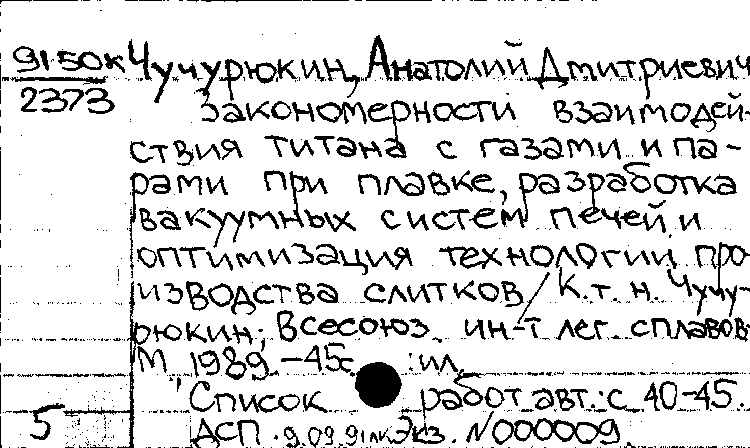 91-50к Чучурюкин, Анатолий Дмитриевич
2373 Закономерности взаимодей-
ствия титана с газами и па-
рами при плавке, разработка
вакуумных систем печей и
оптимизация технологии про-
изводства слитков / К.т.н. Чучу-
рюкин; Всесоюз. ин-т лег. сплавов.
М., 1989. -45с. : ил.
Список работ авт.: с. 40-45.
5 ДСП. 9.09.91лк Экз. N000009